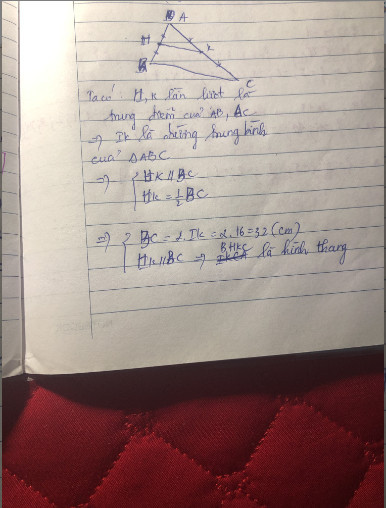 A
H
K
B
C
Ta có: H, K lần lượt là
trung điểm của AB, AC
=> IK là đường trung bình
của ΔABC
=> { HK // BC
HK = 1/2 BC
=> { BC = 2. IK = 2. 16 = 32 (cm)
HK // BC => BHKC là hình thang